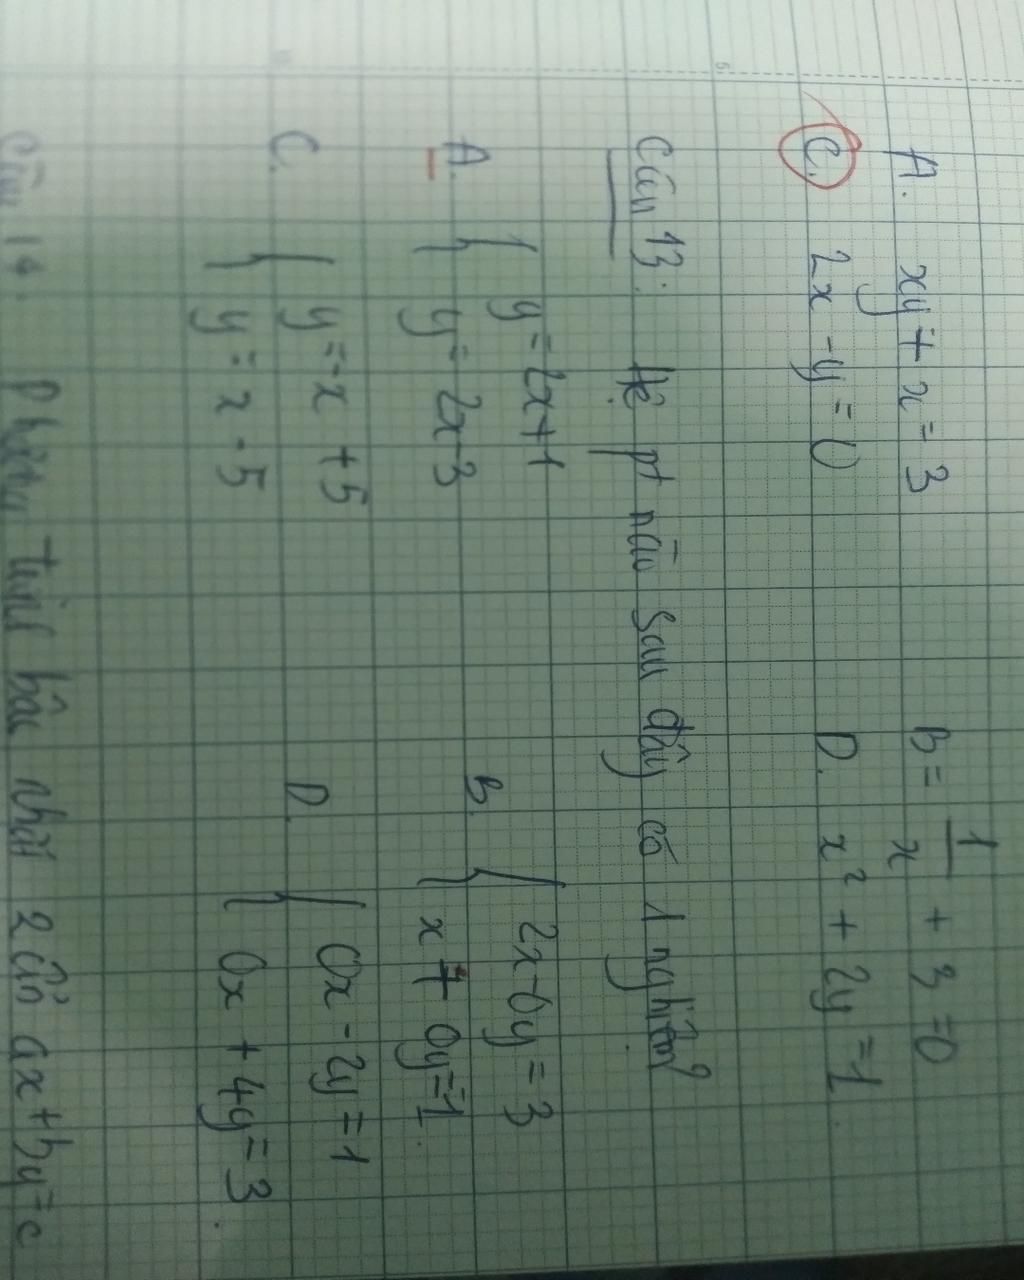 A. xy + x = 3 B = 1/x + 3 = 0
C. 2x - y = 0 D. x² + 2y = 1.
Câu 13: Hệ pt nào sau đây có 1 nghiệm?
A. { y = 2x + 1 B. { 2x - 0y = 3
y = 2x - 3 x + 0y = 1.
C. { y = -x + 5 D. { 0x - 2y = 1
y = x - 5 0x + 4y = 3.
Câu 14. Phương trình bậc nhất 2 ẩn ax + by = c